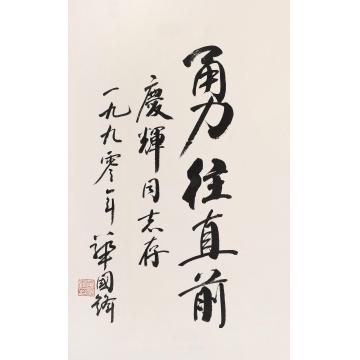 勇往直前
慶輝同志存
一九九零年 華國鋒